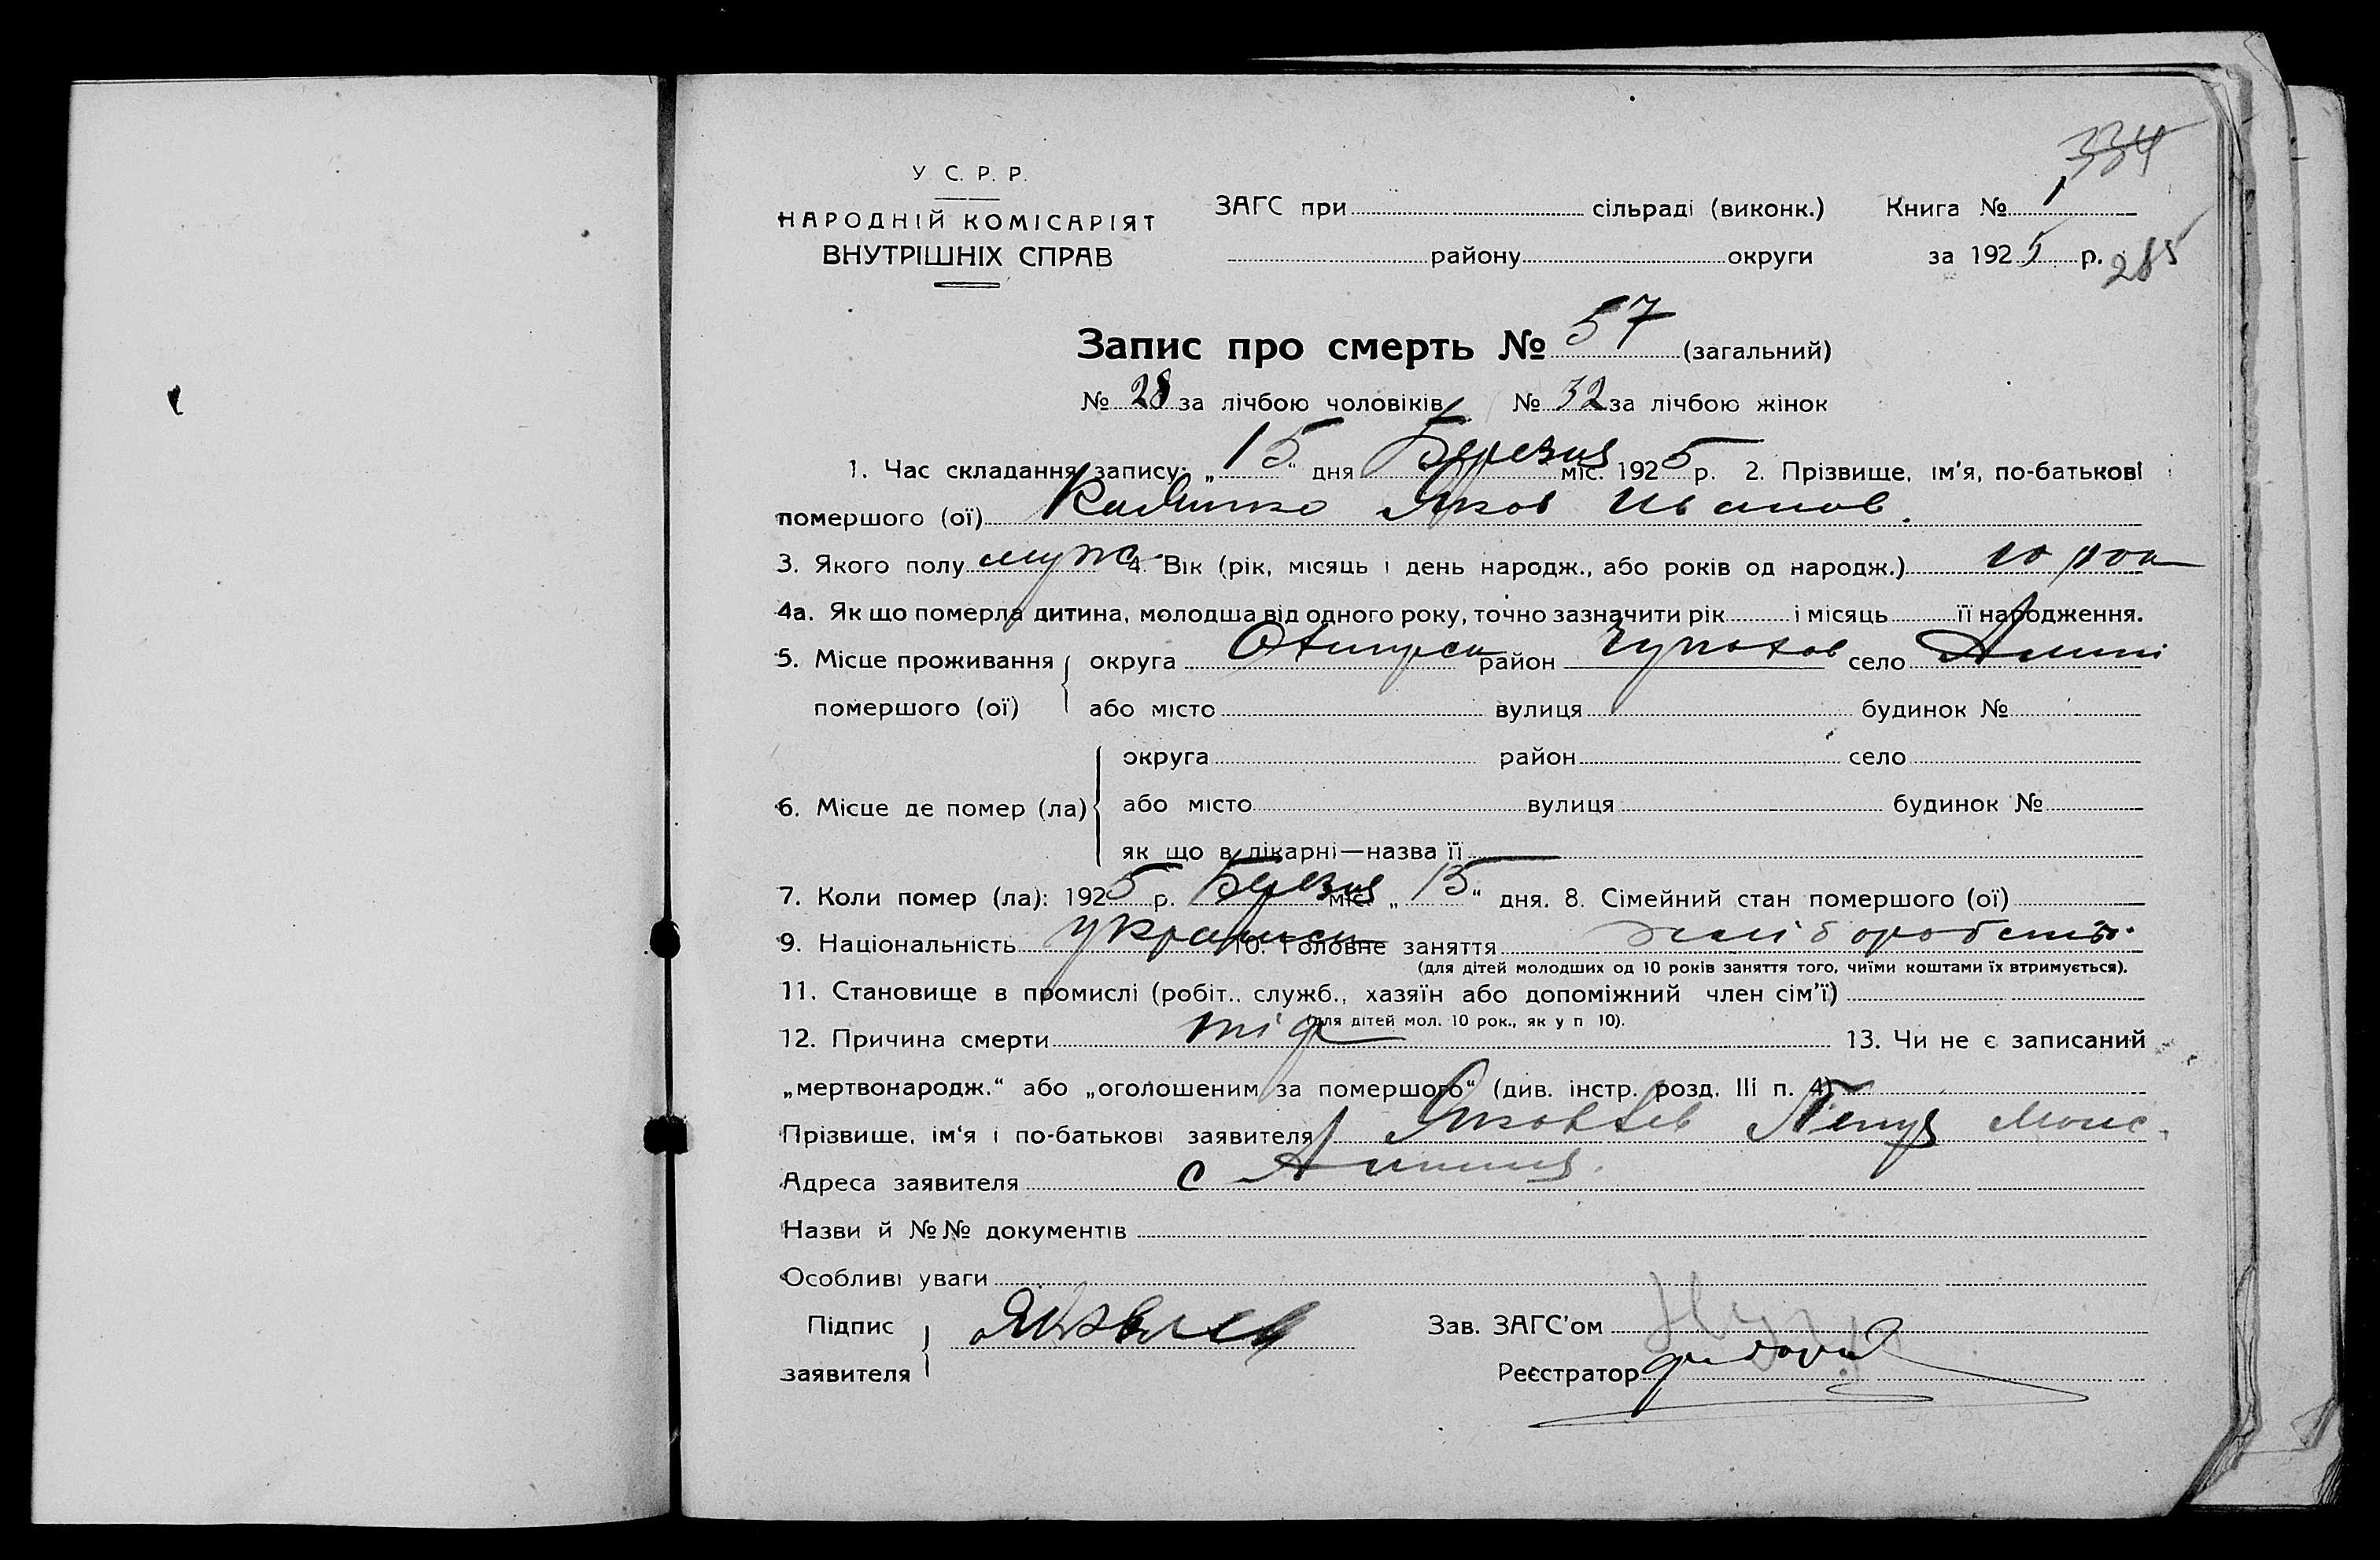 334
У С. Р. Р.
НАРОДНІЙ КОМІСАРІЯТ
ВНУТРІШНІХ СПРАВ
ЗАГС при сільраді (виконк.) Книга № 1
району округи за 1925 р. 285
Запис про смерть № 57 (загальний)
№ 28 за лічбою чоловіків № 32 за лічбою жінок
1. Час складання запису: „ 15 “ дня Березня міс. 1925 р. 2. Прізвище, ім'я, по-батькові
помершого (ої) Яков Иванов.
3. Якого полу муж 4. Вік (рік, місяць і день народж., або років од народж.) 10 рок
4а. Як що померла дитина, молодша від одного року, точно зазначити рік і місяць її народження.
5. Місце проживання округа район село
помершого (ої) або місто вулиця будинок №
округа район село
6. Місце де помер (ла) або місто вулиця будинок №
як що в лікарні—назва її
7. Коли помер (ла): 1925 р. Березня міс. „ 15 “ дня. 8. Сімейний стан помершого (ої)
9. Національність 10. Головне заняття
(для дітей молодших од 10 років заняття того, чиїми коштами їх втримується).
11. Становище в промислі (робіт.. служб., хазяїн або допоміжний член сім'ї)
(для дітей мол. 10 рок., як у п 10).
12. Причина смерти тіф 13. Чи не є записаний
„мертвонародж.“ або „оголошеним за помершого“ (див. інстр. розд. III п. 4)
Прізвище, ім'я і по-батькові заявителя Яковлев
Адреса заявителя с
Назви й №№ документів
Особливі уваги
Підпис заявителя Яковлев
Зав. ЗАГС'ом
Реєстратор